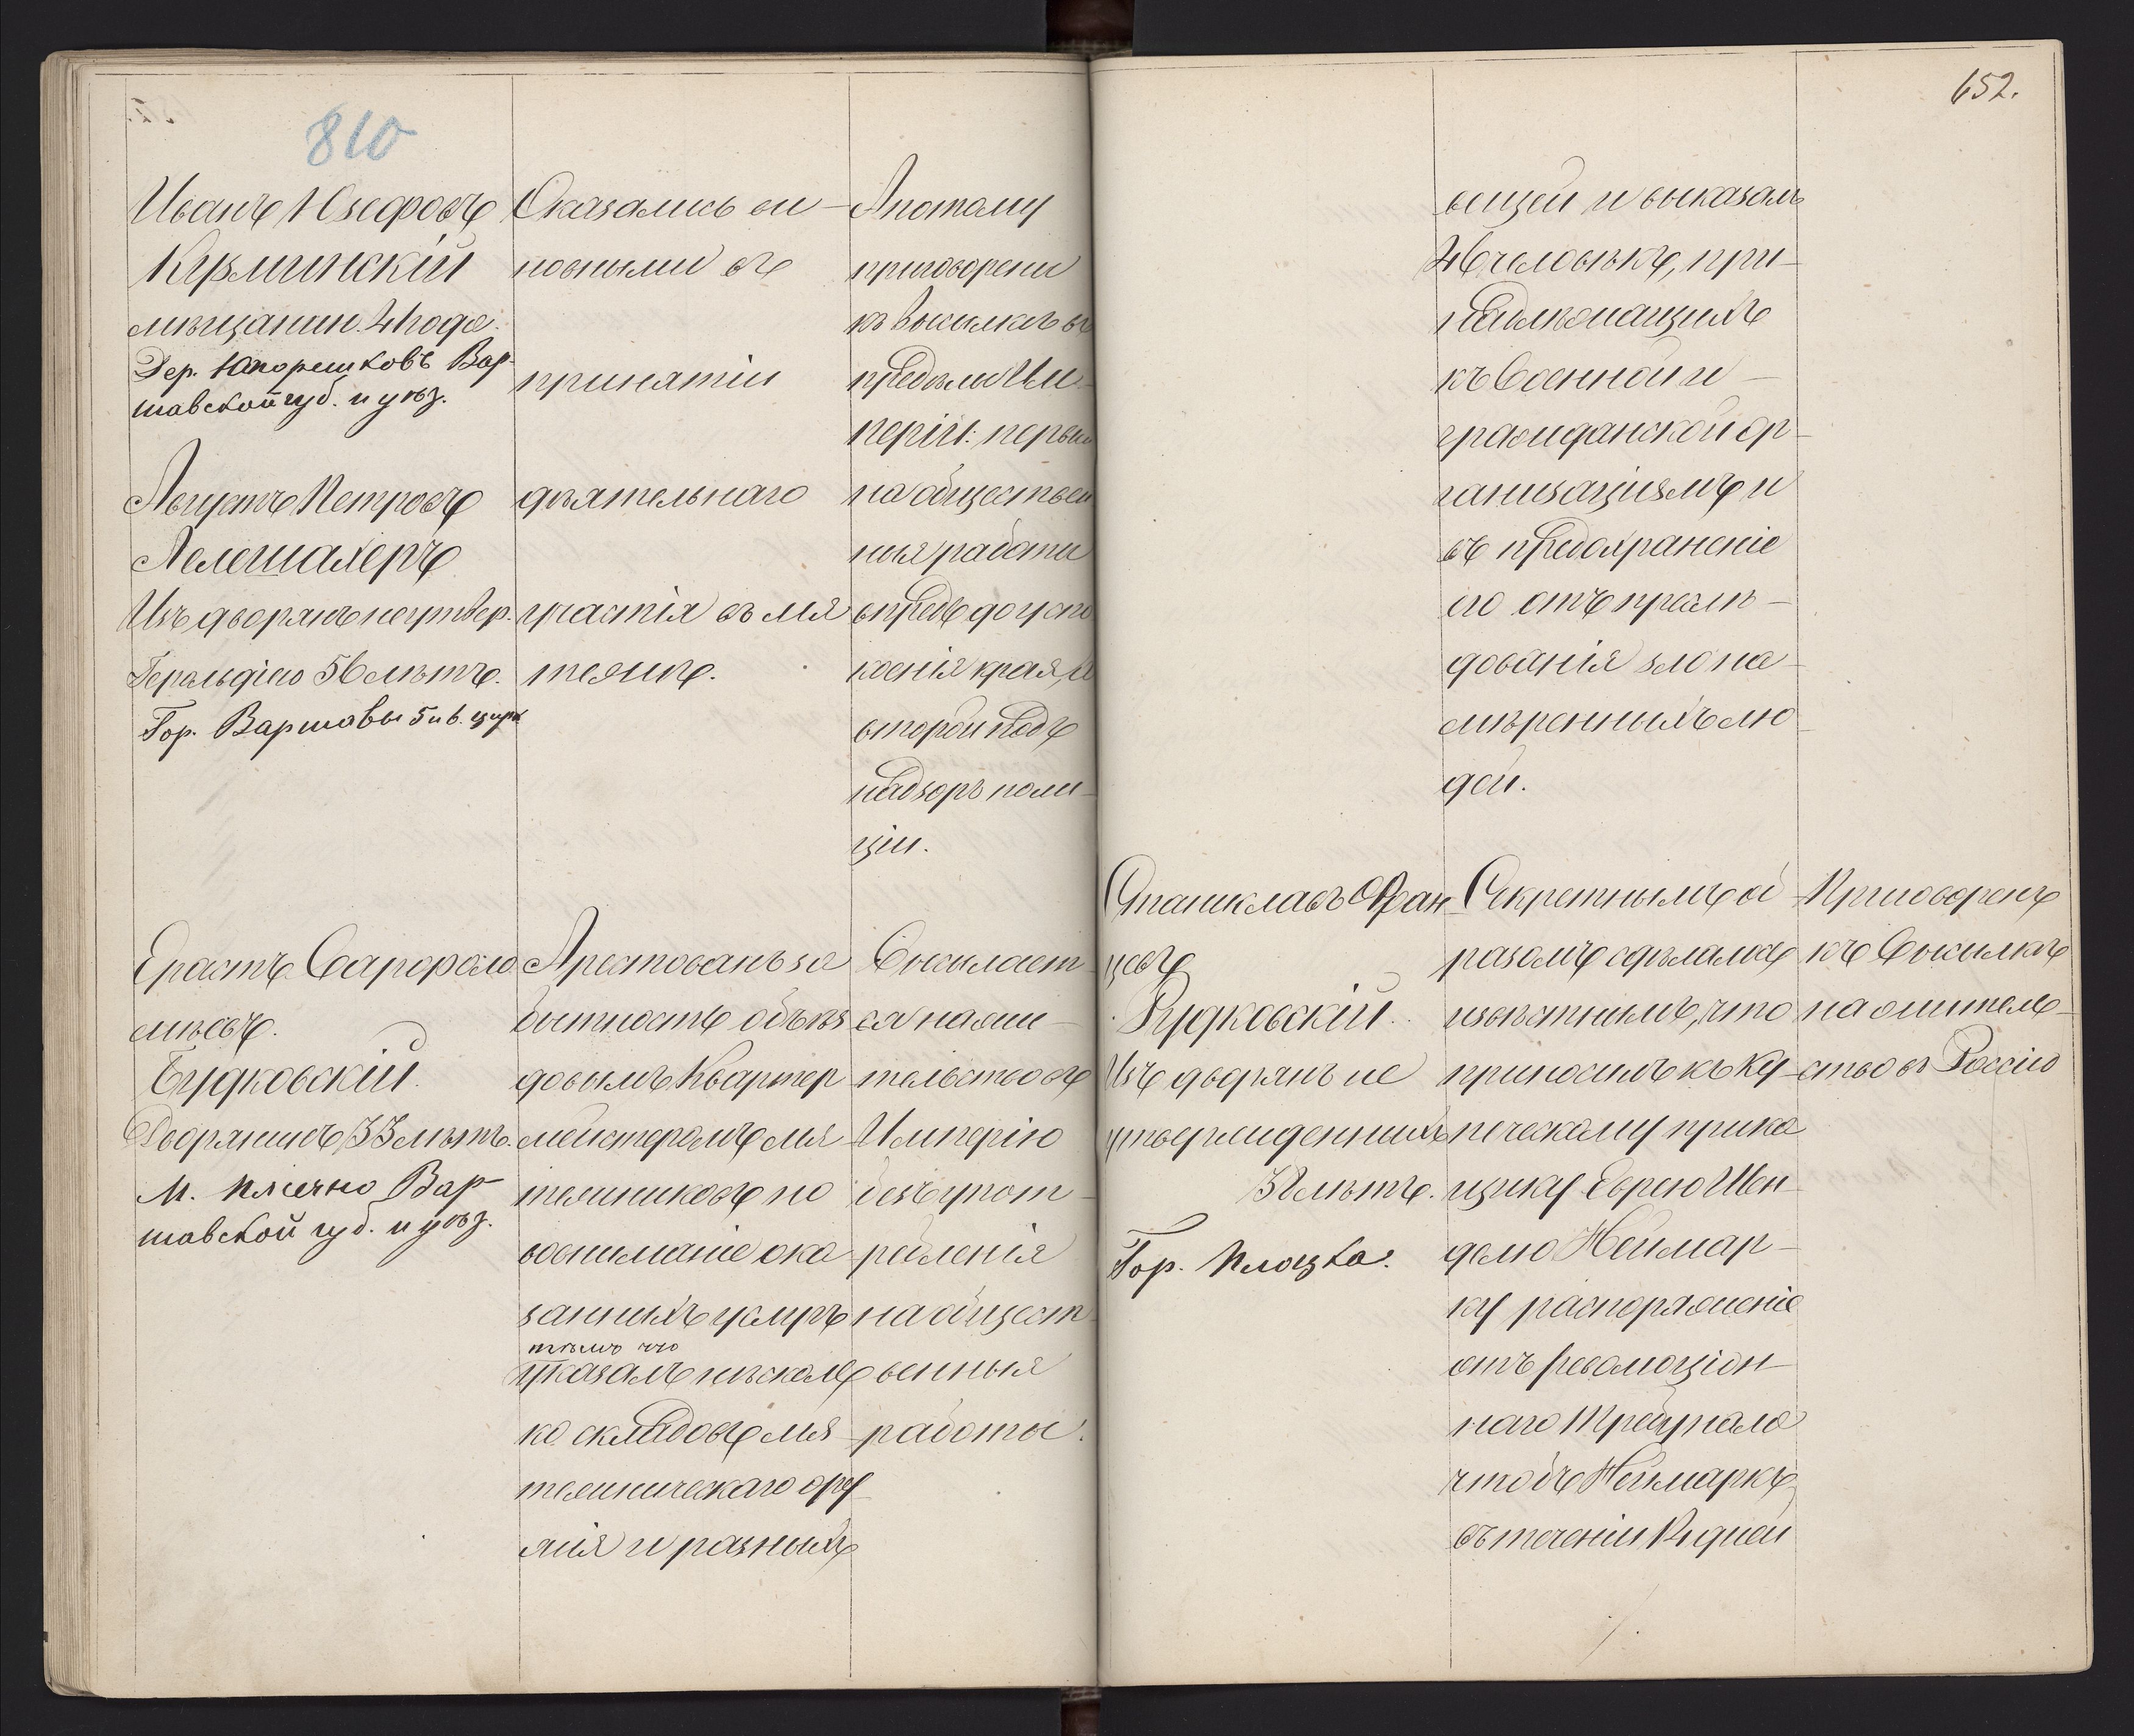 810
Иванъ Юзефовъ
Курминскій
мѣщанинъ 41 года.
Дер. Вар-
шавской губ. и уѣз.
Августъ Петровъ
Лелешахеръ
Изъ дворянъ неутвер.
Герольдіею 56 лѣтъ.
Гор. Варшавы 5 и 6. цирк
Оказались ви-
новными въ
принятіи
дѣятельнаго
участія въ мя
тежѣ.
А потому
приговорены
къ высылкѣ въ
предѣлы Им-
періи: первый
на обществен
ныя работы
впредь до успо
коенія края, а
второй подъ
надзоръ поли-
ціи.
Ерастъ Варфоло
мѣевъ.
Будковскій.
Дворянинъ 33 лѣтъ.
М. Пясечно Вар-
шавской губ. и уѣз.
Арестованъ за
бытность объѣз
довымъ Квартер
мейстеромъ мя
тежниковъ но
вовниманіе ока
занныхъ услугъ
тѣмъ что
указалъ нѣсколь
ко складовъ мя
тежническаго ору
жія и разныхъ
Высылает-
ся на жи-
тельство въ
Имперію
безъ упот-
ребленія
на общест-
венныя
работы.
652.
вещей и выказалъ
46 человѣкъ, при-
надлежащихъ
къ военной и
гражданской ор-
ганизаціямъ и
въ предохраненіе
его отъ преслѣ-
дованія злона-
мѣренныхъ лю-
дей.
Станиславъ Фран
цевъ
Рудковскій.
Изъ дворянъ не
утвержденныхъ
лѣтъ.
Гор. Плоцка.
Секретнымъ об
разомъ сдѣлалось
извѣстнымъ, что
приносилъ къ Ку-
печескому прика
щику Еврею Шен-
делю Неймар-
ку распоряженіе
отъ революціон-
наго Трибунала
чтобъ Неймаркъ
въ теченіи 14 дней
Приговоренъ
къ высылкѣ
на житель-
ство въ Россію